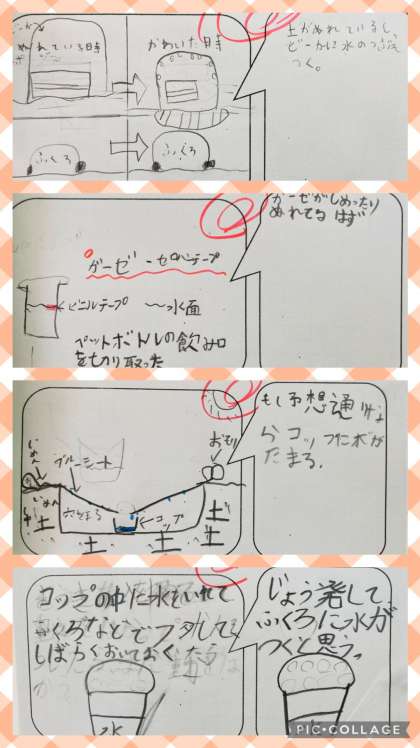 ぬれている時
かわいた時
ふくろ
ふくろ
土がぬれているし、
ビーカーに水のつぶが
つく。
ガーゼ
セロハンテープ
ビニルテープ
水面
ペットボトルの飲み口
を切り取った
ガーゼがしめったり
ぬれてるはず
ブルーシート
おもり
穴をほる
コップ
土
土
土
土
もし予想通りな
らコップに水が
たまる.
コップの中に水をいれて
ふくろなどでフタして
しばらくおいておく
水
じょう発して
ふくろに水が
つくと思う。
PIC•COLLAGE